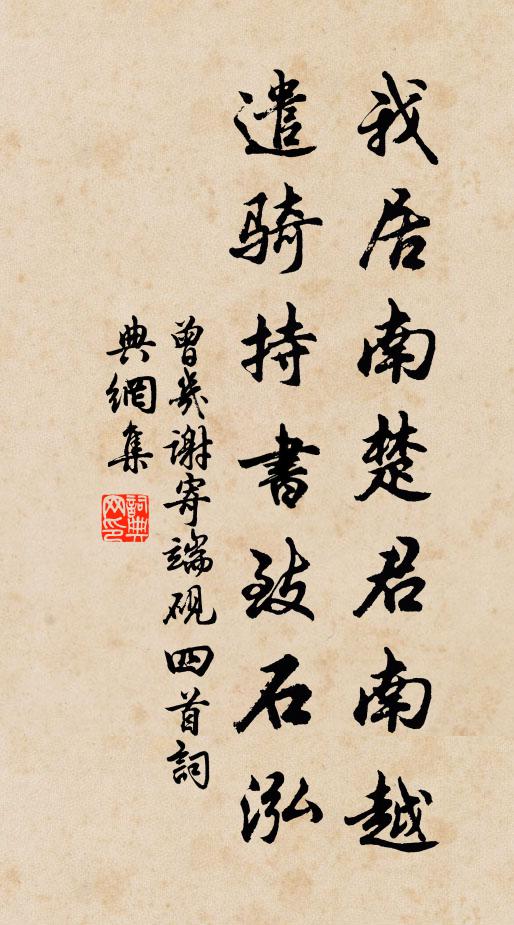 我居南楚君南越
遣骑持書致石泓
曾幾谢寄端砚四首詞
典網集
詞典网印